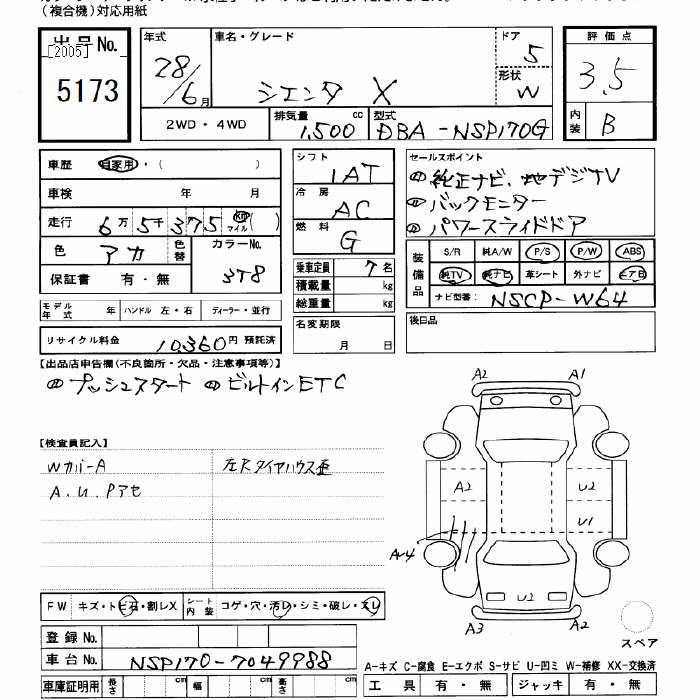 (複合機)対応用紙
出品No.
[2005]
5173
年式 28/6月
車名・グレード シエンタ X
ドア 5
形状 W
評価点 3.5
内装 B
2WD・4WD
排気量 1,500 cc
型式 DBA-NSP170G
車歴 自家用・( )
車検 年 月
走行 6万5千375 km マイル( )
色 アカ 色替 カラーNo. 3T8
保証書 有・無
シフト 1AT
冷房 AC
燃料 G
乗車定員 7名
積載量 kg
総重量 kg
セールスポイント
純正ナビ、地デジTV
バックモニター
パワースライドドア
装備品
S/R 純A/W P/S P/W ABS
純TV 純ナビ 革シート 外ナビ エアB
ナビ型番: NSCP-W64
モデル年式 年 ハンドル 左・右 ディーラー・並行
リサイクル料金 10,360円 預託済
名変期限 月 日
後日品
【出品店申告欄(不良箇所・欠品・注意事項等)】
プッシュスタート ビルトインETC
【検査員記入】
Wカバ-A
A.U.Pアセ
左Rタイヤハウス歪
A2 A1
A2 U2
U1
A-4
U2
A3 A2
スペア
FW キズ・トビ石・割レX シート内装 コゲ・穴・汚レ・シミ・破レ・スレ
登録No.
車台No. NSP170-7049988
車庫証明用 長さ cm 幅 cm 高さ cm
A-キズ C-腐食 E-エクボ S-サビ U-凹ミ W-補修 XX-交換済
工具 有・無 ジャッキ 有・無